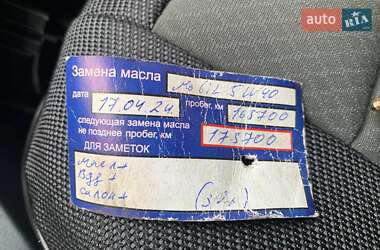 auto RIA
Замена масла Mobil 5W40
дата 17.04.24 пробег, км 165700
следующая замена масла
не позднее пробег, км 175700
ДЛЯ ЗАМЕТОК
Масл+
Взд+
Салон+